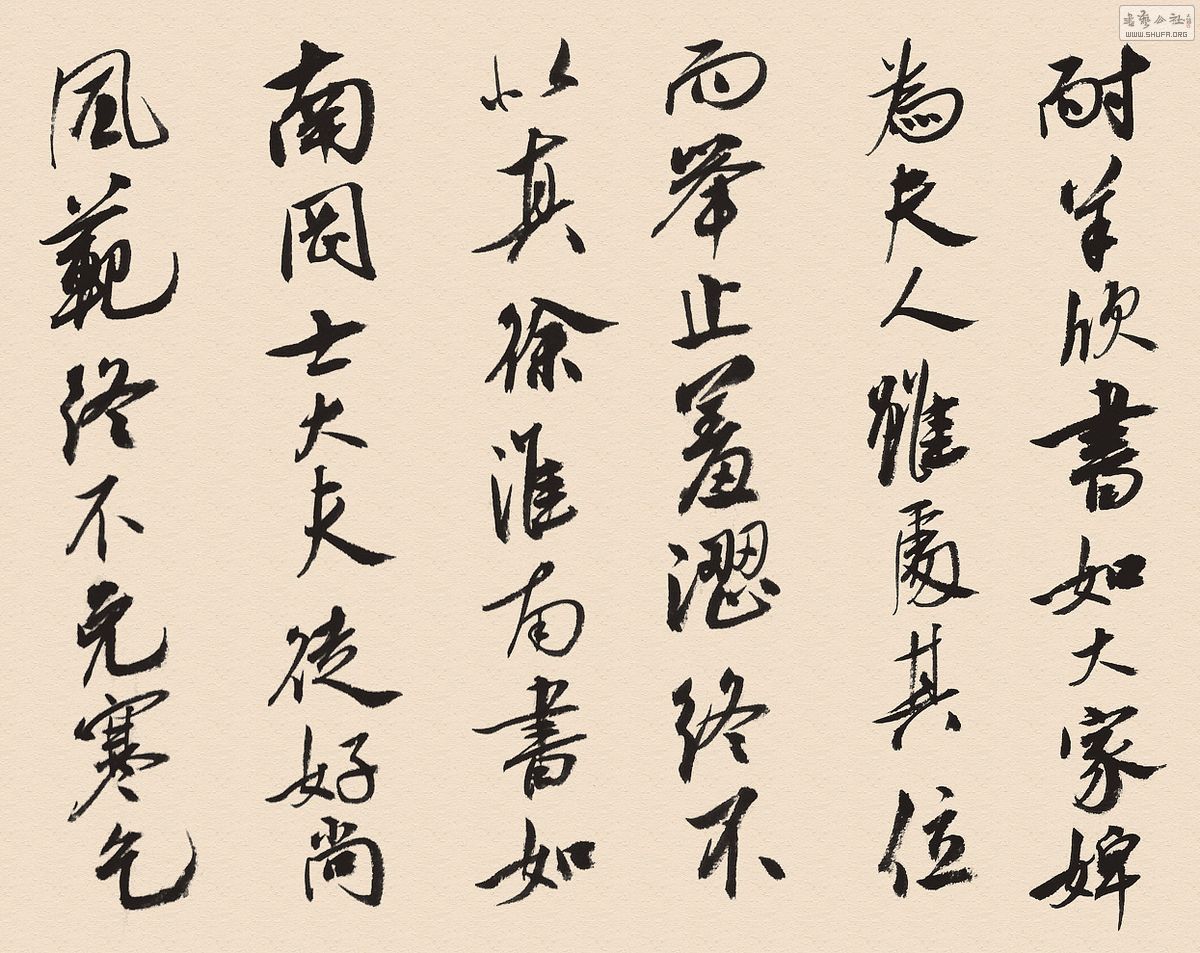 耐羊欣書如大家婢
為夫人雖處其位
而舉止羞澀終不
以真徐淮南書如
南岡士大夫徒好尚
風範終不免寒乞
书艺公社
WWW.SHUFA.ORG